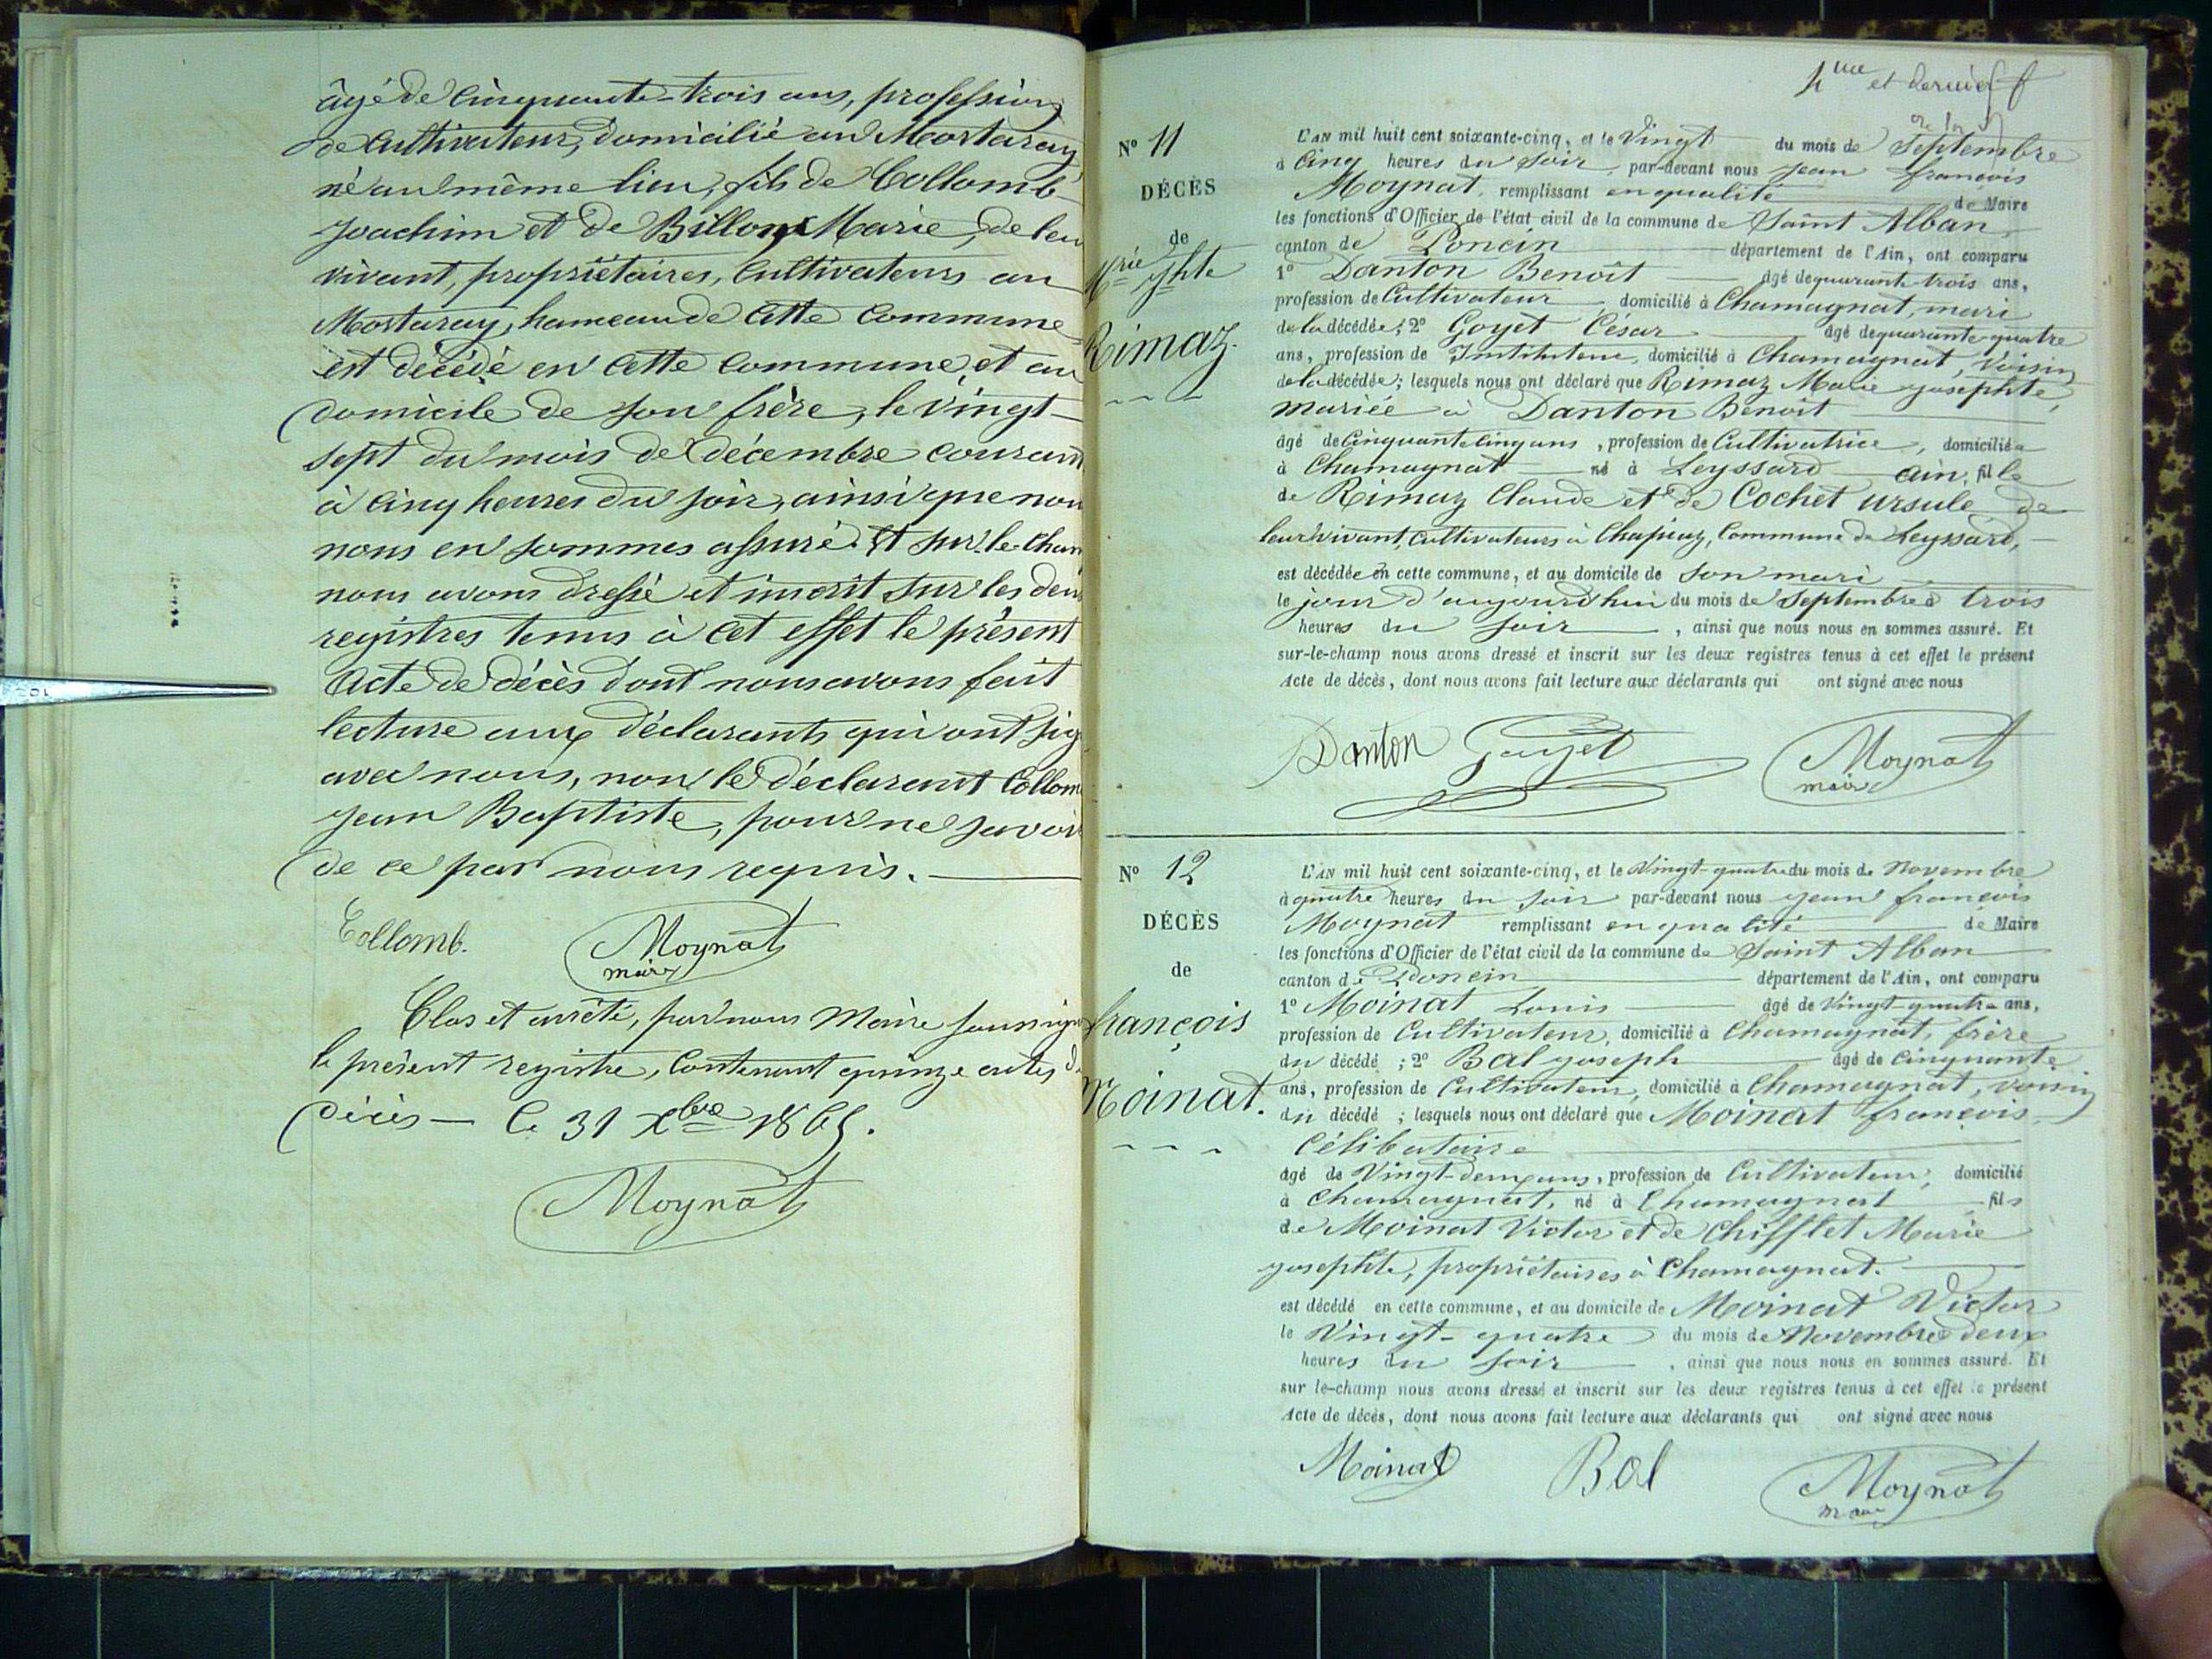 âgé de cinquante-trois ans, profession
de cultivateur, domicilié au Mortaray
né au même lieu, fils de Collomb
Joachim et de Billon Marie, de leu
vivant, propriétaires, Cultivateurs au
Mortaray, hameau de cette commune
est décédé en cette commune, et au
domicile de son frère, le vingt-
sept du mois de décembre courant
à cinq heures du soir, ainsi que nou
nous en sommes assuré. Et sur-le-cham
nous avons dressé et inscrit sur les deux
registres tenus à cet effet le présent
acte de décès dont nous avons fait
lecture aux déclarants qui ont sig
avec nous, non le déclarant Collom
Jean Baptiste, pour ne savoir
de ce par nous requis.
Collomb. Moynat
maire
Clos et arrêté, par nous Maire soussigné
le présent registre, contenant quinze actes de
décès — le 31 Xbre 1865.
Moynat
4me et dernier f
N° 11
DÉCÈS
de
Mrie Jphte
Rimaz.
L'AN mil huit cent soixante-cinq, et le Vingt du mois de Septembre
à Cinq heures du Soir, par-devant nous Jean françois
Moynat, remplissant en qualité de Maire
les fonctions d'Officier de l'état civil de la commune de Saint Alban
canton de Poncin département de l'Ain, ont comparu
1° Danton Benoît âgé de quarante-trois ans,
profession de Cultivateur, domicilié à Chamagnat, mari
de la décédée; 2° Goyet César âgé de quarante-quatre
ans, profession de Instituteur, domicilié à Chamagnat, Voisin
de la décédée; lesquels nous ont déclaré que Rimaz Marie Josephte,
mariée à Danton Benoît
âgé de Cinquante cinq ans, profession de Cultivatrice, domiciliée
à Chamagnat né à Leyssard ain, fille
de Rimaz Claude et de Cochet Ursule, de
leur vivant, Cultivateurs à Chapiaz, Commune de Leyssard,
est décédée en cette commune, et au domicile de Son mari
le jour d'aujourd'hui du mois de Septembre à trois
heures du Soir, ainsi que nous nous en sommes assuré. Et
sur-le-champ nous avons dressé et inscrit sur les deux registres tenus à cet effet le présent
Acte de décès, dont nous avons fait lecture aux déclarants qui ont signé avec nous
Danton Goyet Moynat
maire
N° 12
DÉCÈS
de
françois
Moinat.
L'AN mil huit cent soixante-cinq, et le Vingt-quatre du mois de Novembre
à quatre heures du Soir par-devant nous Jean françois
Moynat remplissant en qualité de Maire
les fonctions d'Officier de l'état civil de la commune de Saint Alban
canton de Poncin département de l'Ain, ont comparu
1° Moinat Louis âgé de Vingt-quatre ans,
profession de Cultivateur, domicilié à Chamagnat, frère
du décédé; 2° Bal Joseph âgé de Cinquante
ans, profession de Cultivateur, domicilié à Chamagnat, voisin
du décédé; lesquels nous ont déclaré que Moinat françois,
Célibataire
âgé de Vingt-deux ans, profession de Cultivateur, domicilié
à Chamagnat, né à Chamagnat fils
de Moinat Victor et de Chifflet Marie
Josephte, propriétaires à Chamagnat.
est décédé en cette commune, et au domicile de Moinat Victor
le Vingt-quatre du mois de Novembre à deux
heures du Soir, ainsi que nous nous en sommes assuré. Et
sur le-champ nous avons dressé et inscrit sur les deux registres tenus à cet effet le présent
Acte de décès, dont nous avons fait lecture aux déclarants qui ont signé avec nous
Moinat Bal Moynat
maire